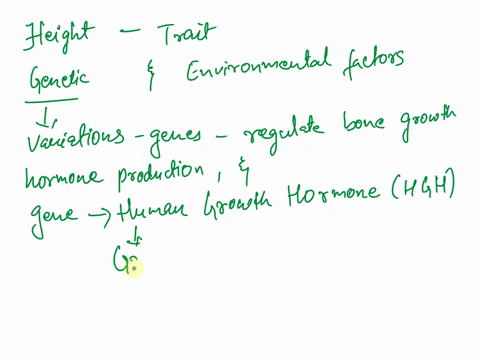 Height - Trait
Genetic & Environmental factors
Variations - genes - regulate bone growth
hormone production, &
gene → Human Growth Hormone (HGH)
G